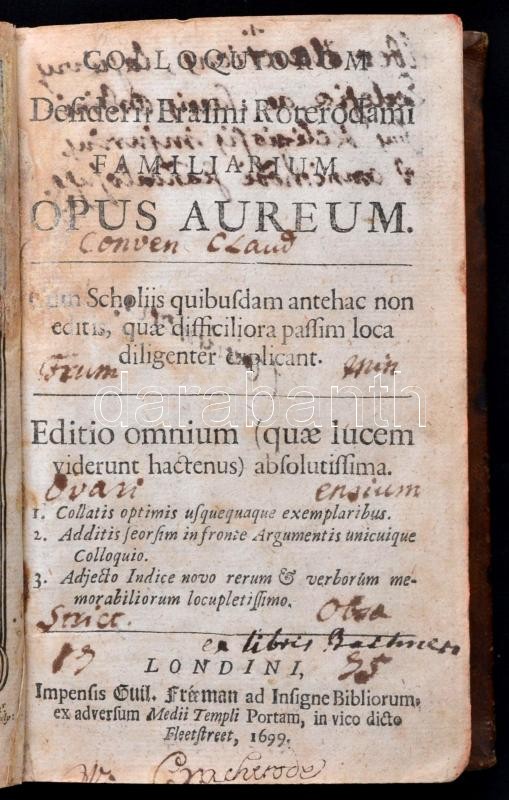 COLLOQUIORUM
Desiderii Erasmi Roterodami
FAMILIARIUM
OPUS AUREUM.
Conven Claud
Cum Scholiis quibusdam antehac non
editis, quæ difficiliora passim loca
diligenter explicant.
Frum Min
darabanth
Editio omnium (quæ lucem
viderunt hactenus) absolutissima.
Ovari ensium
1. Collatis optimis usquequaque exemplaribus.
2. Additis seorsim in fronte Argumentis unicuique
Colloquio.
3. Adjecto Indice novo rerum & verborum me-
morabiliorum locupletissimo.
Strict. Obsa
ex libris
LONDINI,
Impensis Guil. Freeman ad Insigne Bibliorum,
ex adversum Medii Templi Portam, in vico dicto
Fleetstreet, 1699.
W. Cracherode